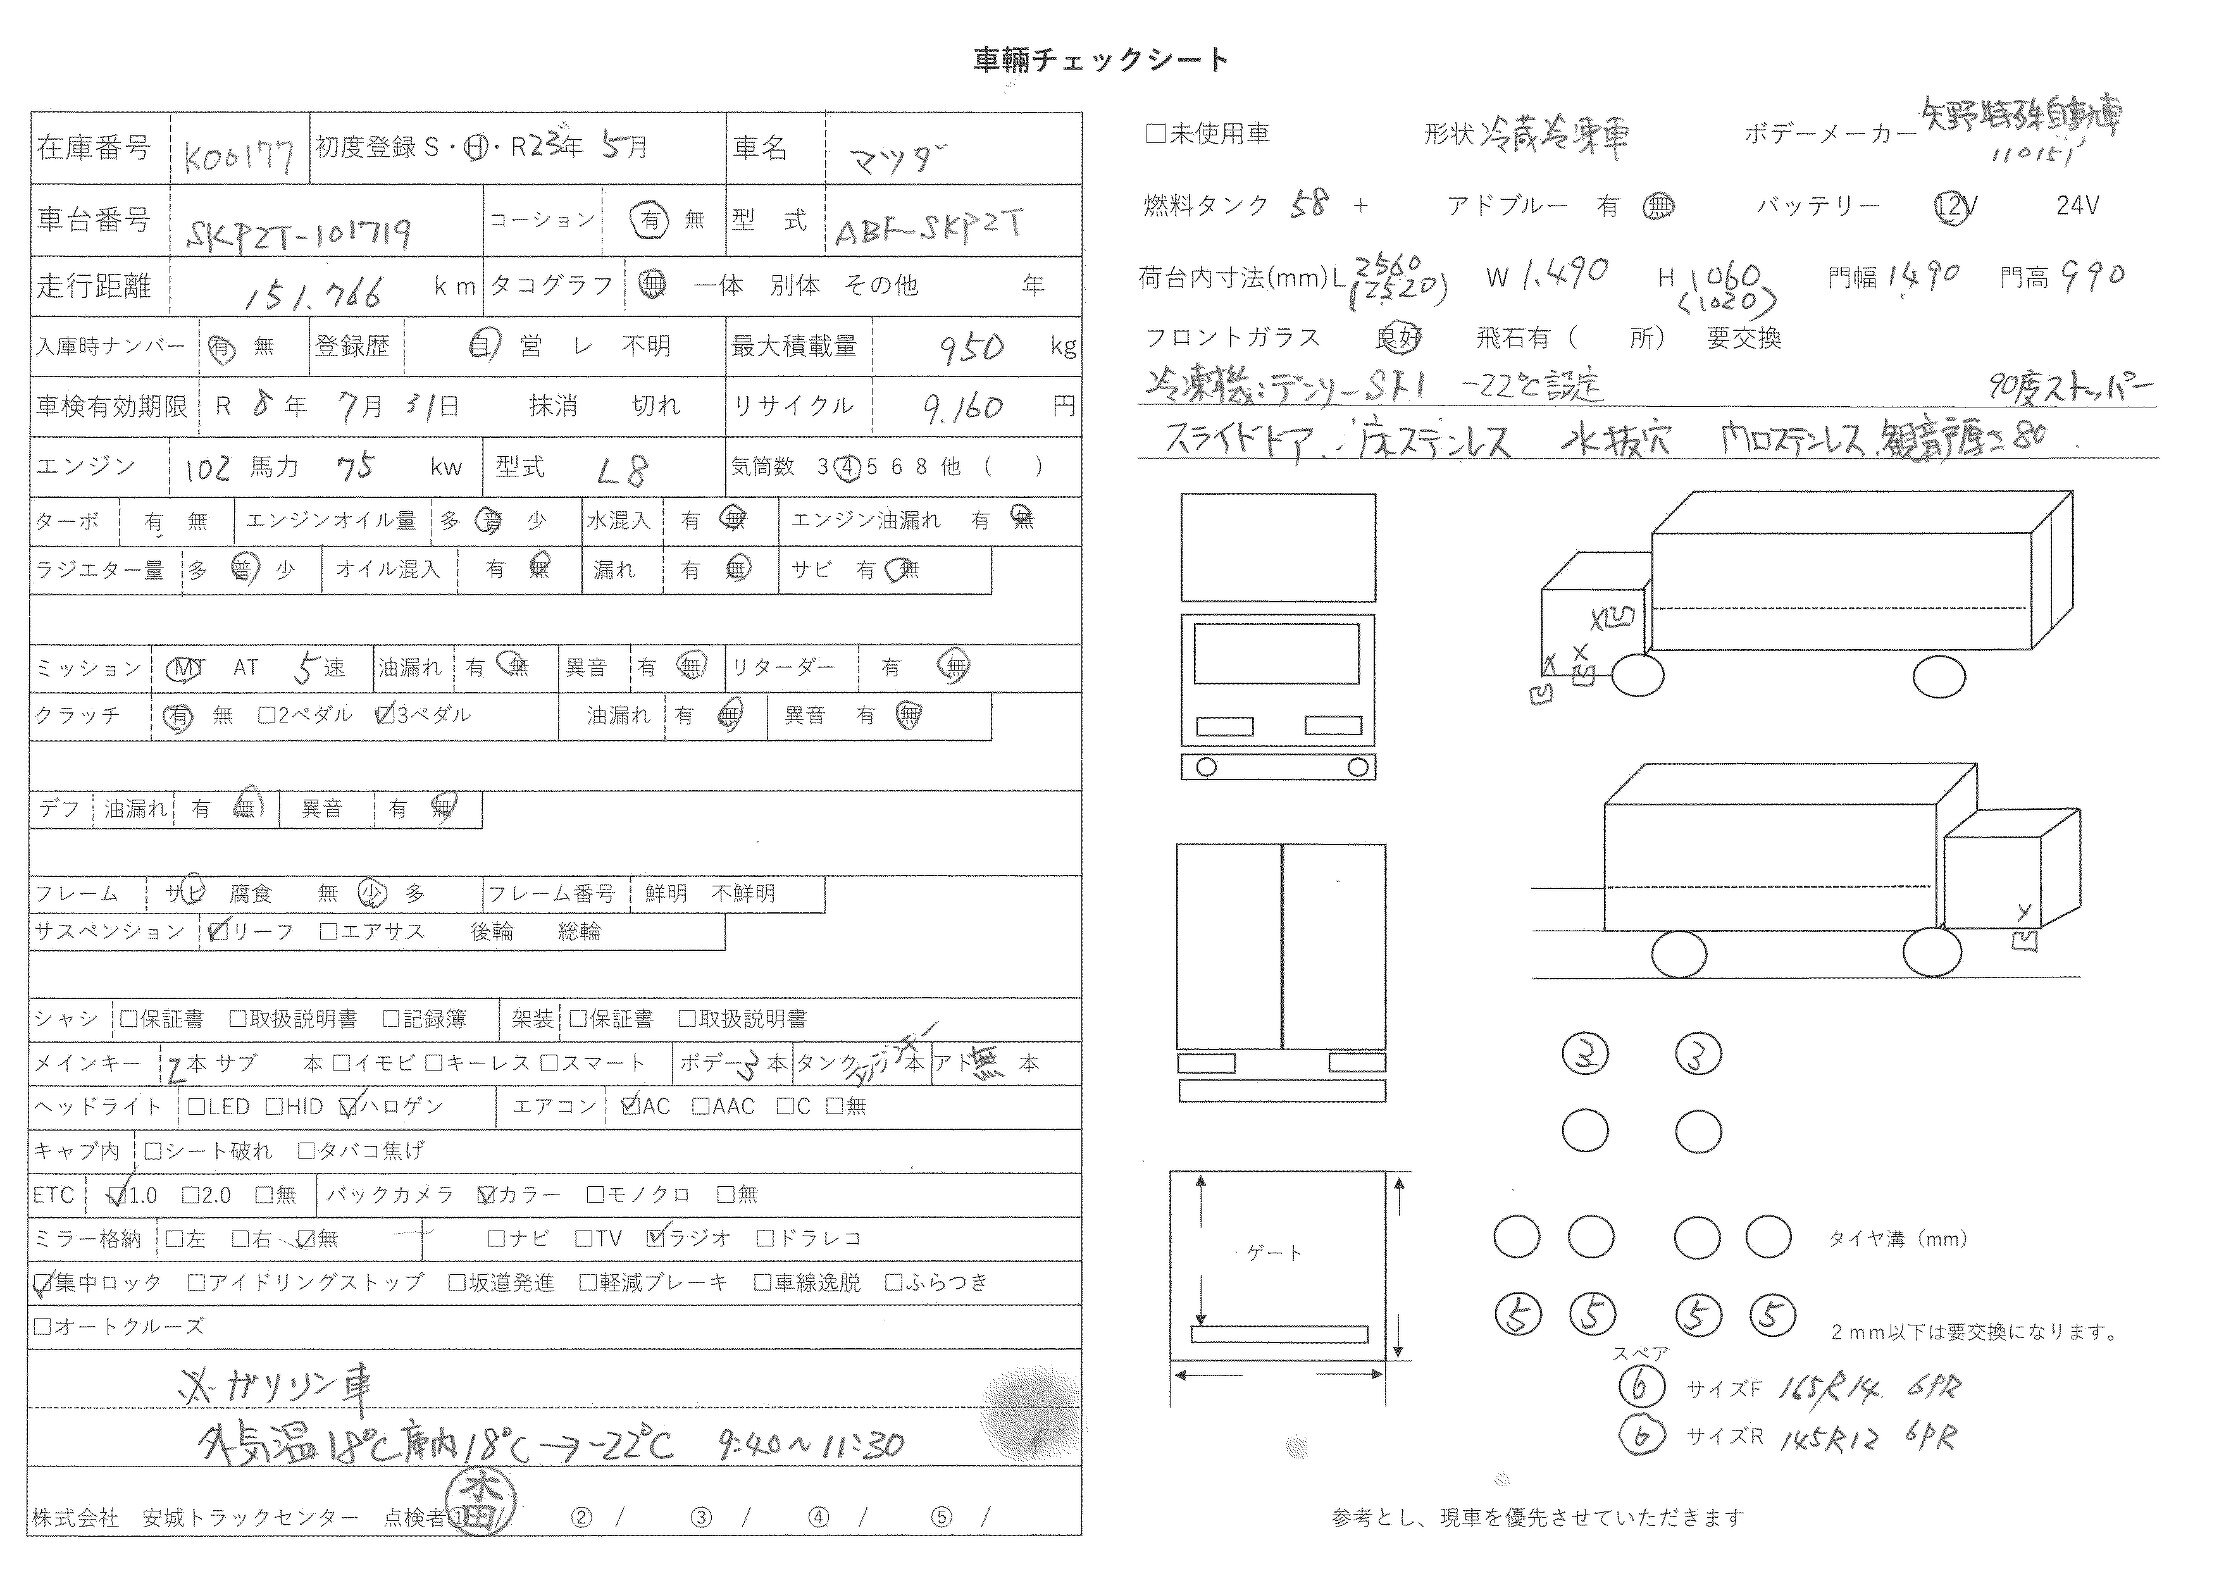 車輛チェックシート
在庫番号 K00177 初度登録 S・Ⓗ・R23年 5月 車名 マツダ
車台番号 SKP2T-101719 コーション 有 無 型 式 ABF-SKP2T
走行距離 151.766 km タコグラフ 無 一体 別体 その他 年
入庫時ナンバー 有 無 登録歴 自 営 レ 不明 最大積載量 950 kg
車検有効期限 R 8年 7月 31日 抹消 切れ リサイクル 9.160 円
エンジン 102 馬力 75 kw 型式 L8 気筒数 3 ④ 5 6 8 他 ( )
ターボ 有 無 エンジンオイル量 多 普 少 水混入 有 無 エンジン油漏れ 有 無
ラジエター量 多 普 少 オイル混入 有 無 漏れ 有 無 サビ 有 無
ミッション MT AT 5速 油漏れ 有 無 異音 有 無 リターダー 有 無
クラッチ 有 無 □2ペダル ☑3ペダル 油漏れ 有 無 異音 有 無
デフ 油漏れ 有 無 異音 有 無
フレーム サビ 腐食 無 少 多 フレーム番号 鮮明 不鮮明
サスペンション ☑リーフ □エアサス 後輪 総輪
シャシ □保証書 □取扱説明書 □記録簿 架装 □保証書 □取扱説明書
メインキー 2本 サブ 本 □イモビ □キーレス □スマート ボデー3本 タンク 本 アド無 本
ヘッドライト □LED □HID ☑ハロゲン エアコン ☑AC □AAC □C □無
キャブ内 □シート破れ □タバコ焦げ
ETC ☑1.0 □2.0 □無 バックカメラ ☑カラー □モノクロ □無
ミラー格納 □左 □右 ☑無 □ナビ □TV ☑ラジオ □ドラレコ
☑集中ロック □アイドリングストップ □坂道発進 □軽減ブレーキ □車線逸脱 □ふらつき
□オートクルーズ
※ガソリン車
外気温18℃庫内18℃→-22℃ 9:40~11:30
株式会社 安城トラックセンター 点検者① ② / ③ / ④ / ⑤ /
□未使用車 形状 冷蔵冷凍車 ボデーメーカー 矢野特殊自動車
110151
燃料タンク 58 + アドブルー 有 無 バッテリー 12V 24V
荷台内寸法(mm)L 2560 W 1.490 H 1060 門幅 1490 門高 990
(2520) (1020)
フロントガラス 良好 飛石有 ( 所) 要交換
冷凍機:デンソー -22℃設定 90度ストッパー
スライドドア 床ステンレス 水抜穴 内ロステンレス 観音戸厚さ80
X凹
X X
凹 凹
X
凹
3 3
ゲート
タイヤ溝 (mm)
5 5 5 5
2mm以下は要交換になります。
スペア
6 サイズF 165R14 6PR
6 サイズR 145R12 6PR
参考とし、現車を優先させていただきます